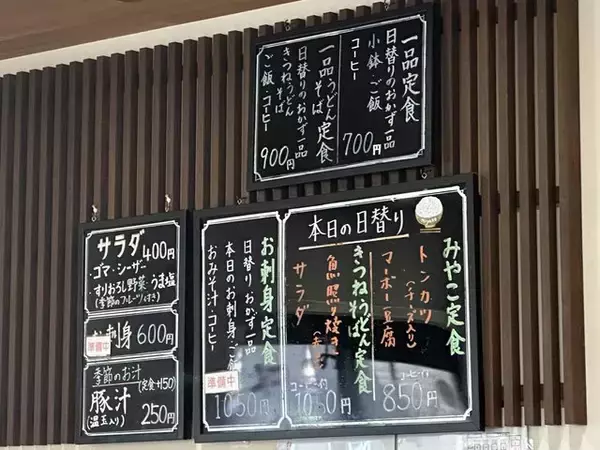 一品定食
日替りのおかず一品
小鉢・ご飯
コーヒー
700円
一品うどん定食
そば
日替りのおかず一品
きつねうどん
そば
ご飯・コーヒー
900円
本日の日替り
みやこ定食
トンカツ
(チーズ入り)
マーボー豆腐
850円
きつねうどん定食
そば
魚照り焼き
サラダ
1050円
お刺身定食
日替りおかず一品
本日のお刺身・ご飯
おみそ汁・コーヒー
準備中
1050円
サラダ 400円
・ゴマ・シーザー
・すりおろし野菜・うま塩
(季節のフルーツ付き)
お刺身 600円
準備中
季節のお汁
(定食+150)
豚汁
(温玉入り) 250円